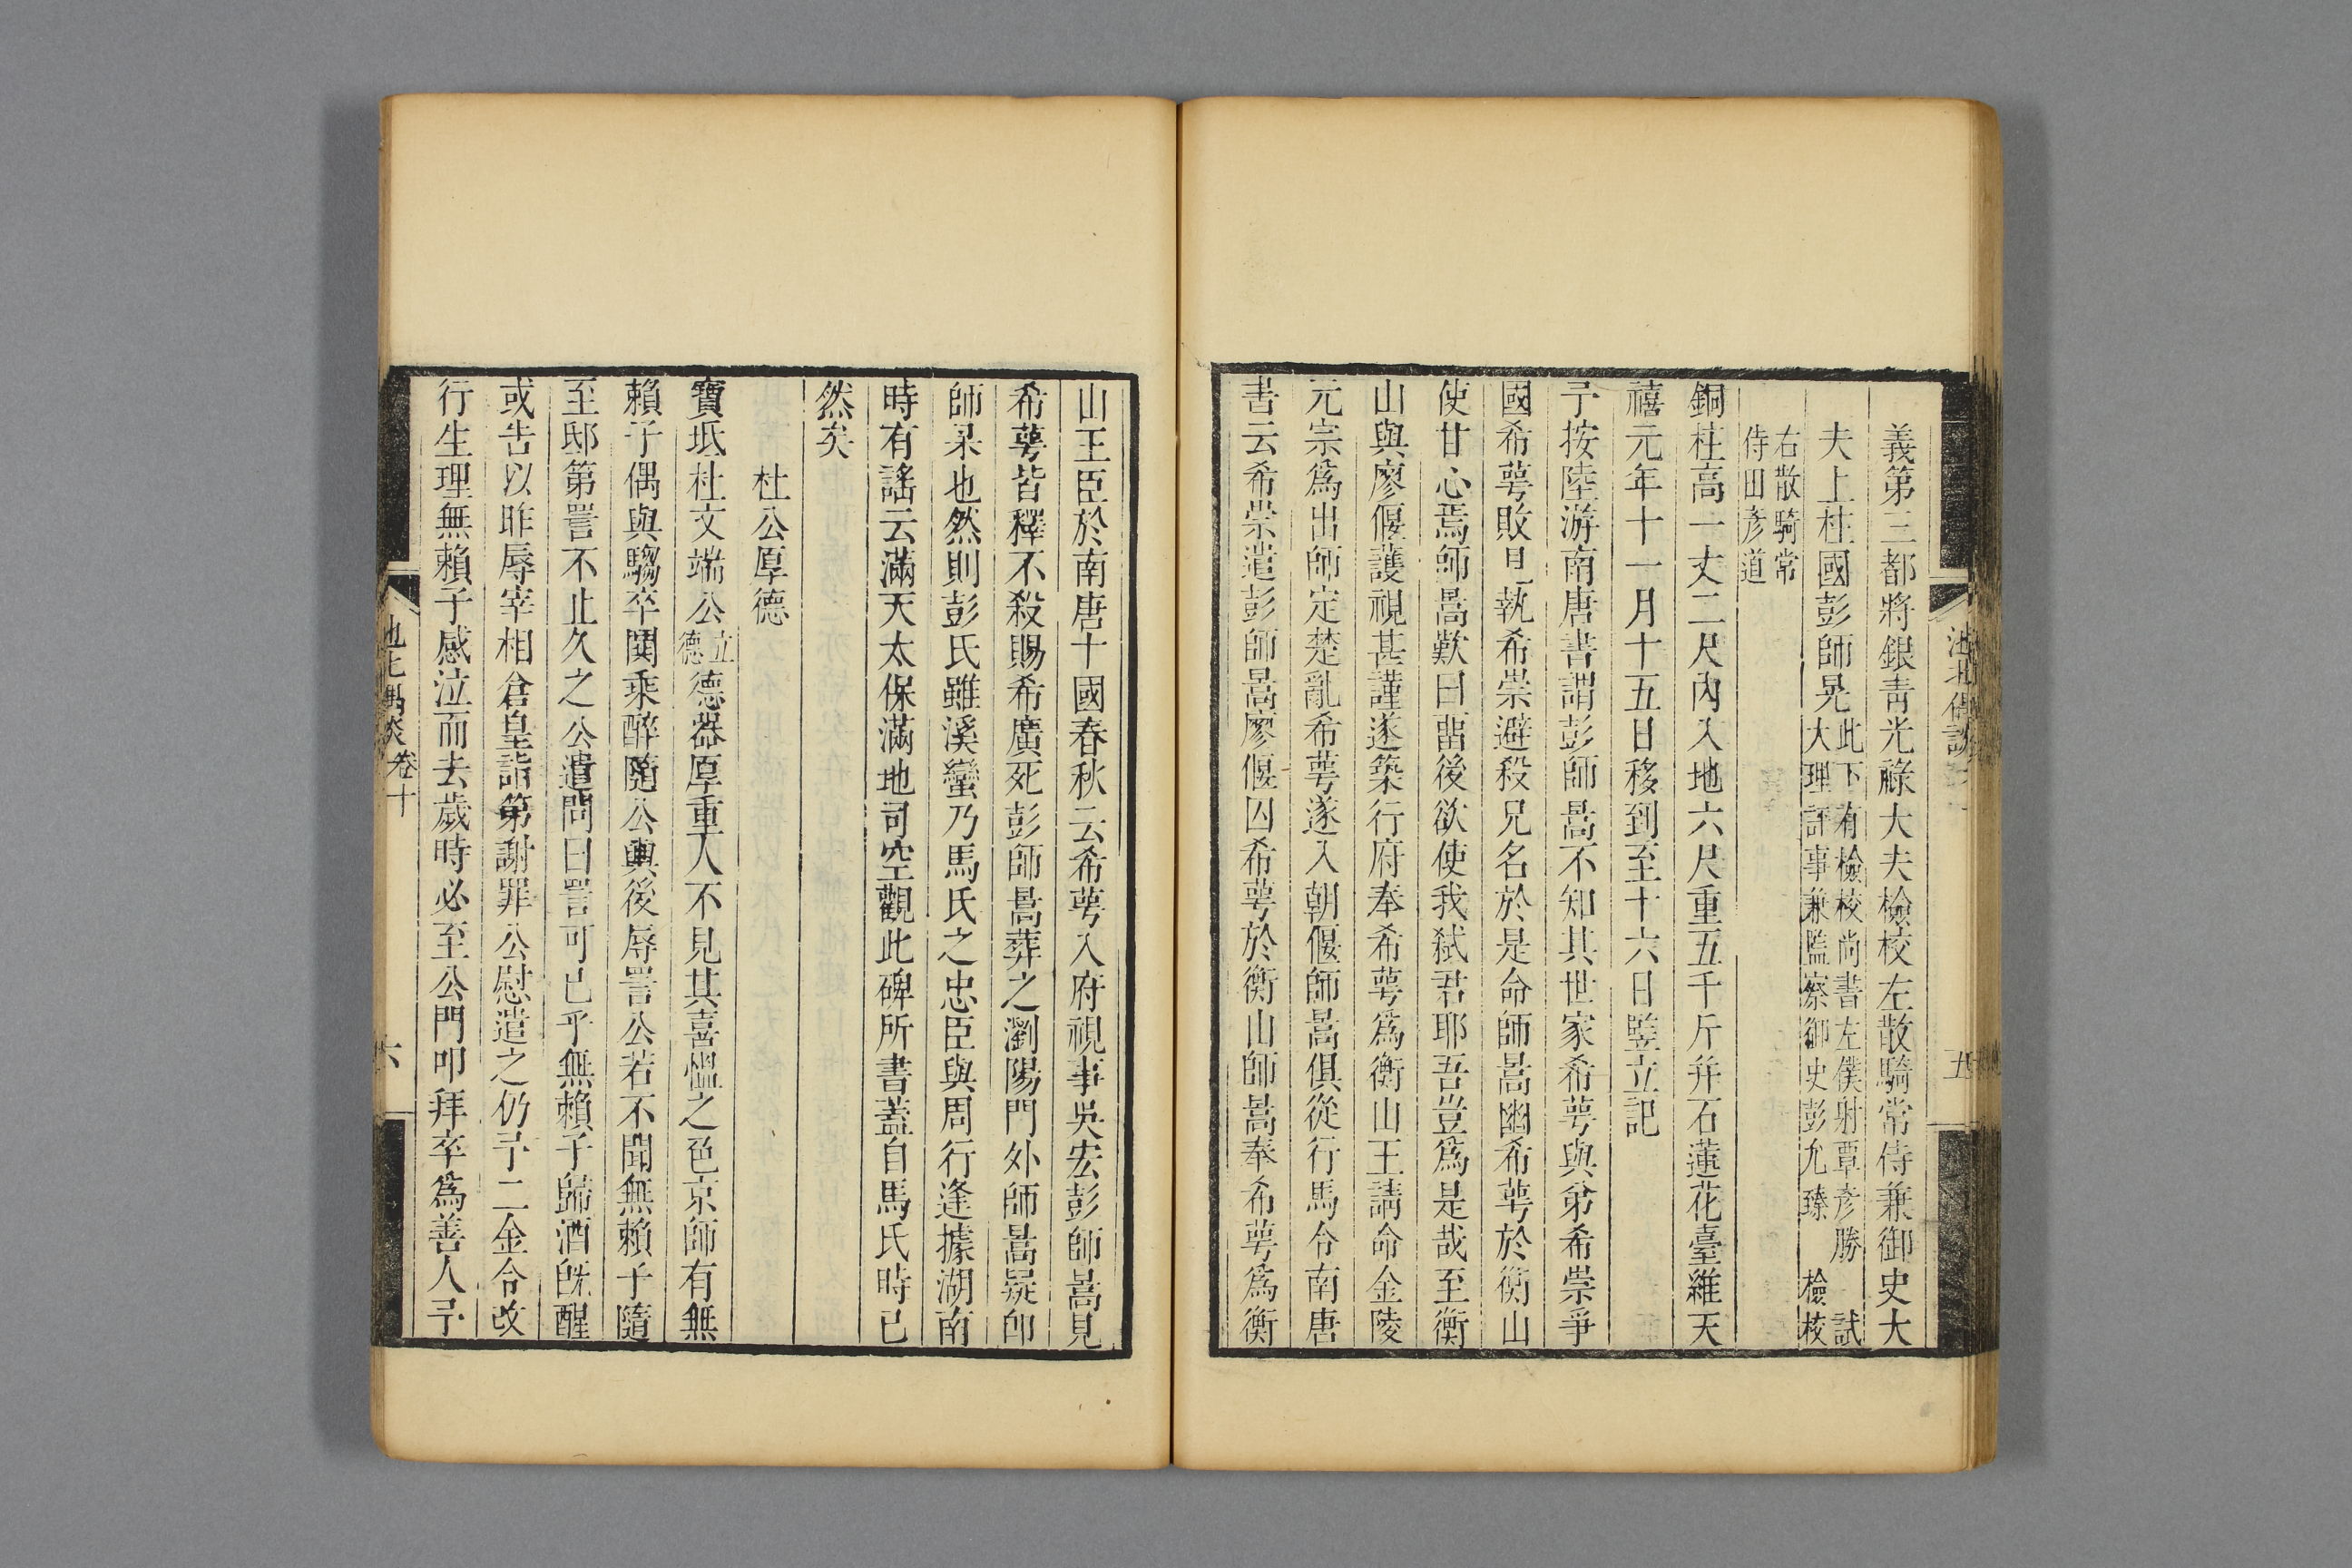 池北偶談
五
義第三都將銀青光祿大夫檢校左散騎常侍兼御史大
夫上柱國彭師晃此下有檢校尚書左僕射覃彥勝　試
大理評事兼監察御史彭允臻　檢校
右散騎常
侍田彥道
銅柱高一丈二尺內入地六尺重五千斤并石蓮花臺維天
禧元年十一月十五日移到至十六日豎立記
予按陸游南唐書謂彭師暠不知其世家希萼與弟希崇爭
國希萼敗見執希崇避殺兄名於是命師暠幽希萼於衡山
使甘心焉師暠歎曰畱後欲使我弑君耶吾豈為是哉至衡
山與廖偃護視甚謹遂築行府奉希萼為衡山王請命金陵
元宗為出師定楚亂希萼遂入朝偃師暠俱從行馬令南唐
書云希崇遣彭師暠廖偃囚希萼於衡山師暠奉希萼為衡
山王臣於南唐十國春秋云希萼入府視事吳宏彭師暠見
希萼皆釋不殺賜希廣死彭師暠葬之瀏陽門外師暠疑卽
師杲也然則彭氏雖溪蠻乃馬氏之忠臣與周行逢據湖南
時有謠云滿天太保滿地司空觀此碑所書蓋自馬氏時已
然矣
杜公厚德
寶坻杜文端公立德德器厚重人不見其喜慍之色京師有無
賴子偶與騶卒鬨乘醉隨公輿後辱詈公若不聞無賴子隨
至邸第詈不止久之公遣問曰詈可已乎無賴子歸酒旣醒
或告以昨辱宰相倉皇詣第謝罪公慰遣之仍予二金令改
行生理無賴子感泣而去歲時必至公門叩拜卒為善人予
池北偶談
卷十
六